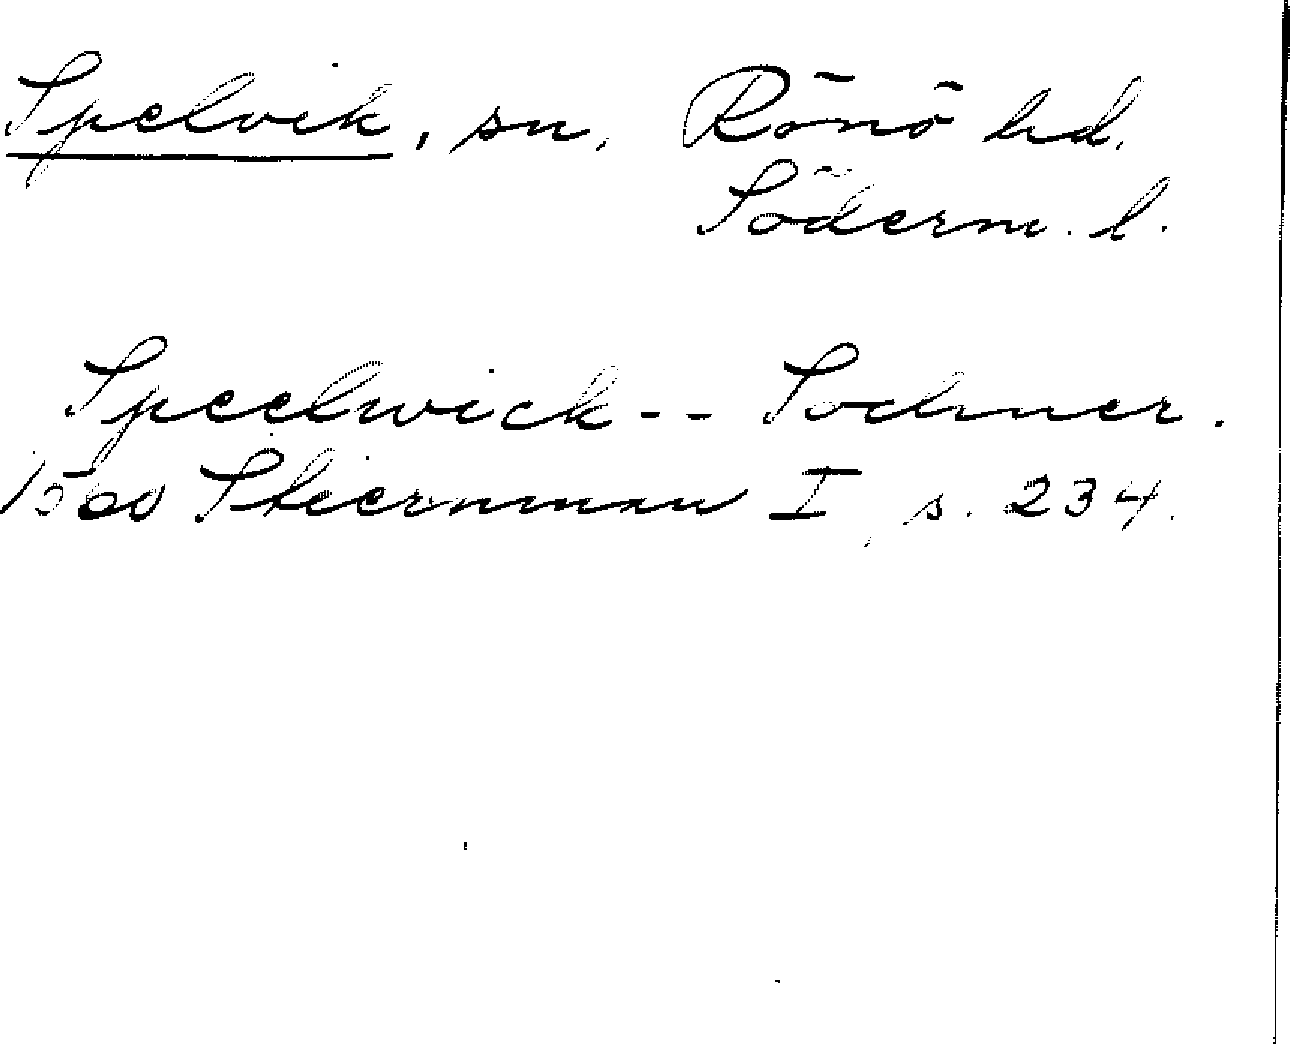 Spelvik, sn, Rönö hd.
Söderm. l.
Speelwick-- Sodmer.
1560 Stiernman I, s. 234.